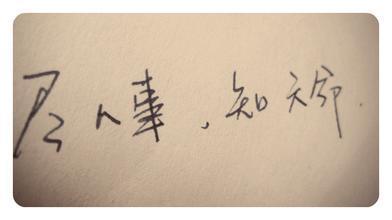 尽人事，知天命.